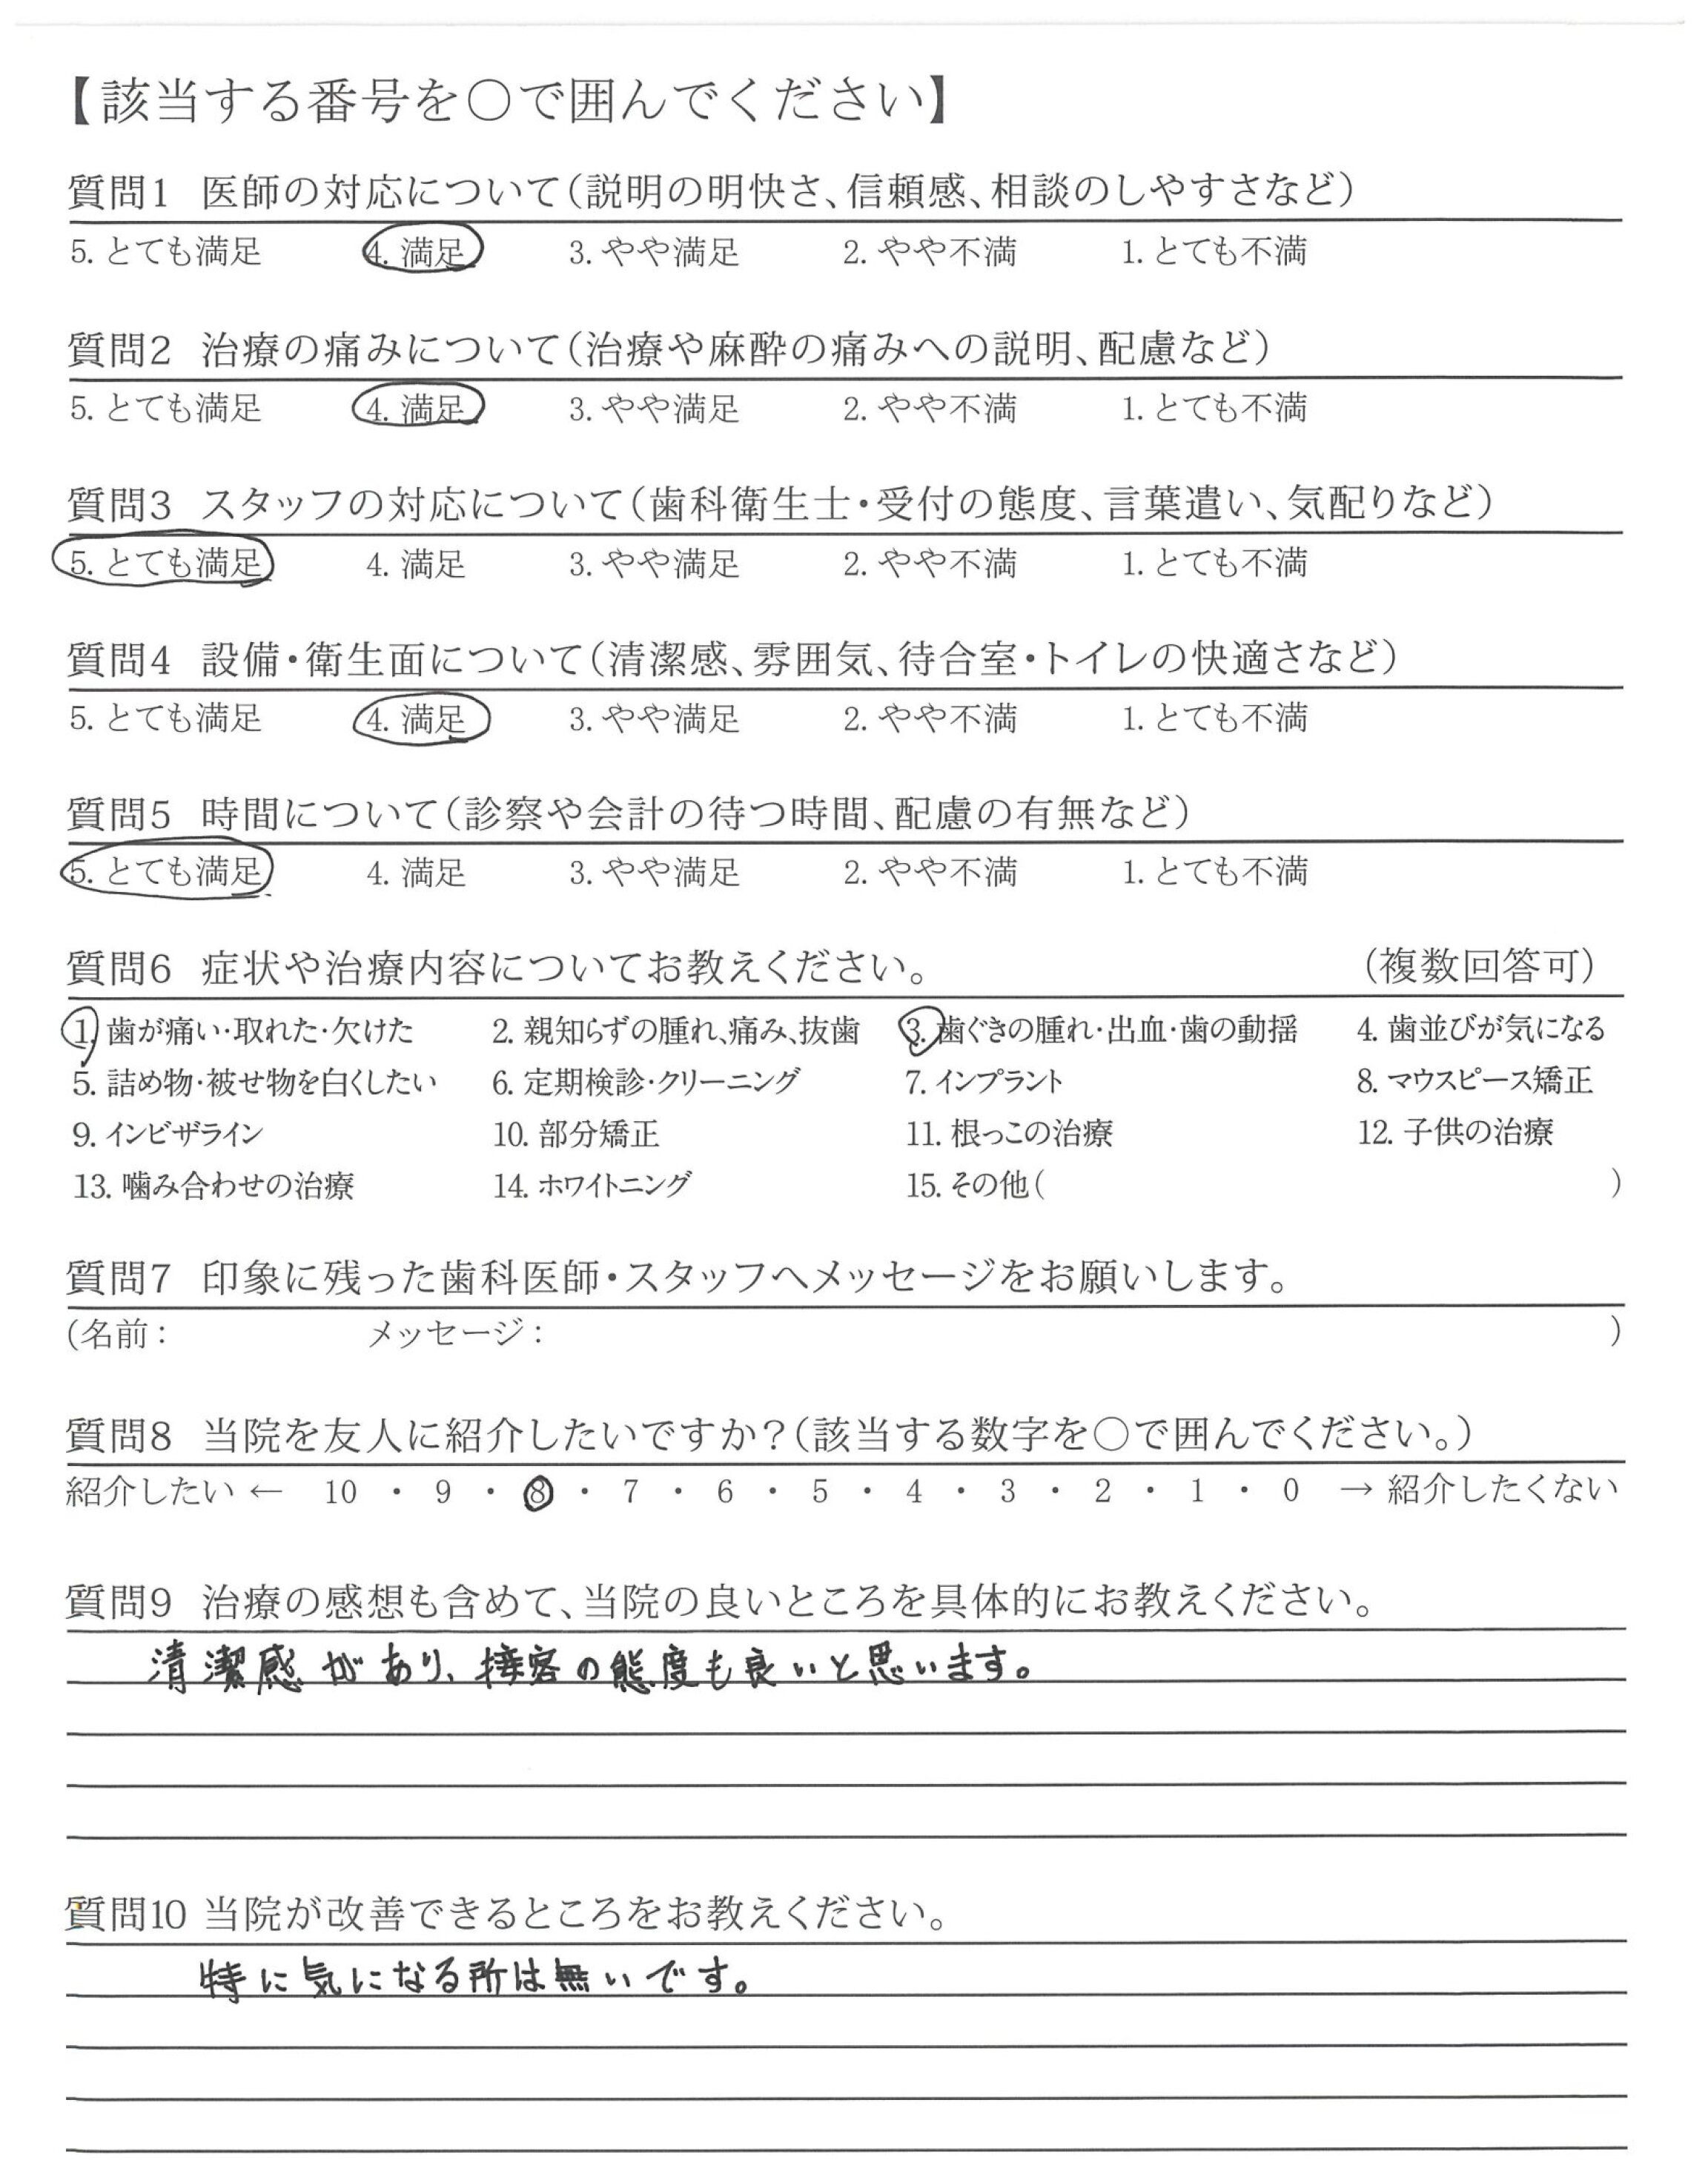 【該当する番号を○で囲んでください】
質問1 医師の対応について(説明の明快さ、信頼感、相談のしやすさなど)
5. とても満足 4. 満足 3. やや満足 2. やや不満 1. とても不満
質問2 治療の痛みについて(治療や麻酔の痛みへの説明、配慮など)
5. とても満足 4. 満足 3. やや満足 2. やや不満 1. とても不満
質問3 スタッフの対応について(歯科衛生士・受付の態度、言葉遣い、気配りなど)
5. とても満足 4. 満足 3. やや満足 2. やや不満 1. とても不満
質問4 設備・衛生面について(清潔感、雰囲気、待合室・トイレの快適さなど)
5. とても満足 4. 満足 3. やや満足 2. やや不満 1. とても不満
質問5 時間について(診察や会計の待つ時間、配慮の有無など)
5. とても満足 4. 満足 3. やや満足 2. やや不満 1. とても不満
質問6 症状や治療内容についてお教えください。 (複数回答可)
1. 歯が痛い・取れた・欠けた 2. 親知らずの腫れ、痛み、抜歯 3. 歯ぐきの腫れ・出血・歯の動揺 4. 歯並びが気になる
5. 詰め物・被せ物を白くしたい 6. 定期検診・クリーニング 7. インプラント 8. マウスピース矯正
9. インビザライン 10. 部分矯正 11. 根っこの治療 12. 子供の治療
13. 噛み合わせの治療 14. ホワイトニング 15. その他( )
質問7 印象に残った歯科医師・スタッフへメッセージをお願いします。
(名前: メッセージ: )
質問8 当院を友人に紹介したいですか?(該当する数字を○で囲んでください。)
紹介したい ← 10 ・ 9 ・ 8 ・ 7 ・ 6 ・ 5 ・ 4 ・ 3 ・ 2 ・ 1 ・ 0 → 紹介したくない
質問9 治療の感想も含めて、当院の良いところを具体的にお教えください。
清潔感があり、接客の態度も良いと思います。
質問10 当院が改善できるところをお教えください。
特に気になる所は無いです。